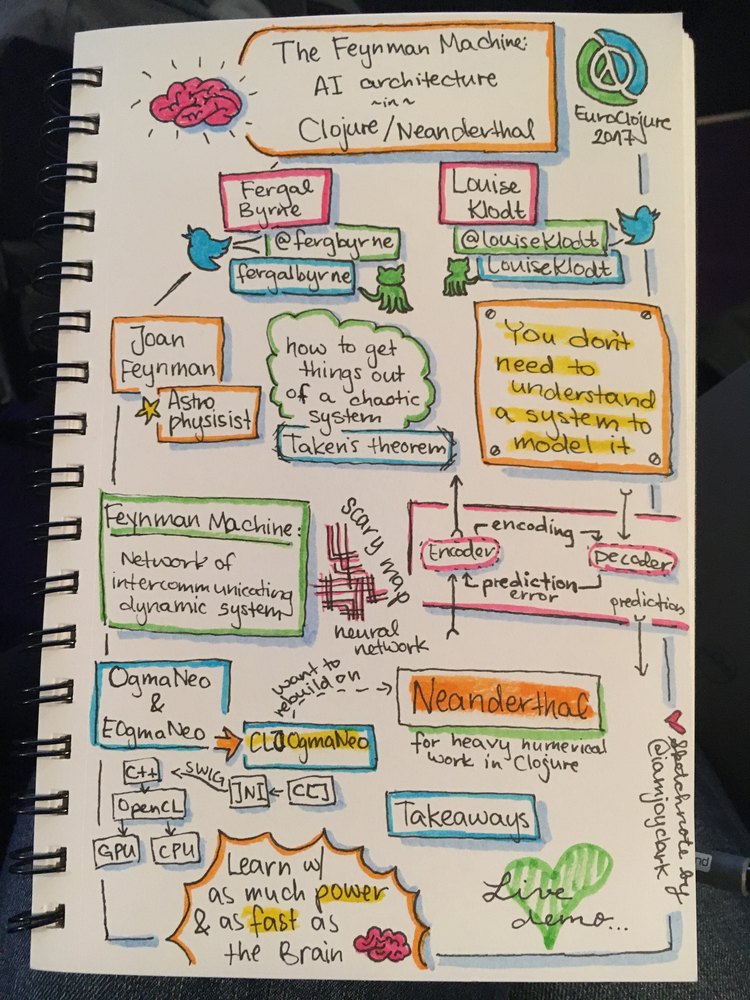 The Feynman Machine:
AI architecture
~in~
Clojure/Neanderthal
EuroClojure
2017
Fergal
Byrne
@fergbyrne
fergalbyrne
Louise
Klodt
@louiseklodt
LouiseKlodt
Joan
Feynman
Astro
physisist
how to get
things out
of a chaotic
system
Taken's theorem
You don't
need to
understand
a system to
model it
Feynman Machine:
Network of
intercommunicating
dynamic system
scary map
neural
network
Encoder
encoding
Decoder
prediction
error
prediction
OgmaNeo
&
EOgmaNeo
CLJOgmaNeo
want to
rebuild on
Neanderthal
for heavy numerical
work in Clojure
C++
SWIG
JNI
CLJ
OpenCL
GPU
CPU
Takeaways
Learn w/
as much power
& as fast as
the Brain
Live
demo...
Sketchnote by
@iamjoyclark
nd